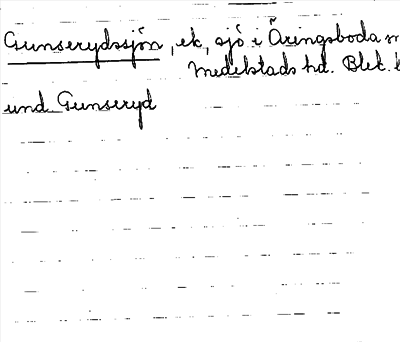 Gunserydssjön, ek, sjö i Äringsboda
Medelstads hd. Blek.
und Gunseryd